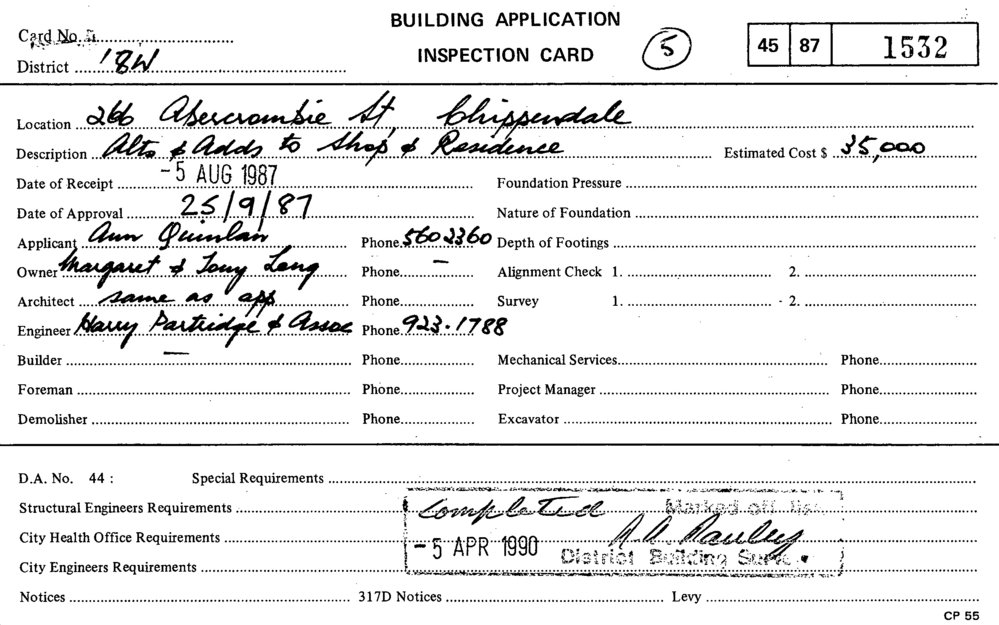 BUILDING APPLICATION
INSPECTION CARD
Card No.
District '8W
5
45 87 1532
Location 266 Abercrombie St, Chippendale
Description Alts & Adds to Shop & Residence Estimated Cost $ 35,000
Date of Receipt -5 AUG 1987 Foundation Pressure
Date of Approval 25/9/87 Nature of Foundation
Applicant Ann Quinlan Phone 560 2360 Depth of Footings
Owner Margaret & Tony Long Phone — Alignment Check 1. 2.
Architect same as app Phone Survey 1. 2.
Engineer Harry Partridge & Assoc Phone 923.1788
Builder — Phone Mechanical Services Phone
Foreman Phone Project Manager Phone
Demolisher Phone Excavator Phone
D.A. No. 44 : Special Requirements
Structural Engineers Requirements Completed Marked off
City Health Office Requirements
-5 APR 1990 District Building
City Engineers Requirements
Notices 317D Notices Levy
CP 55